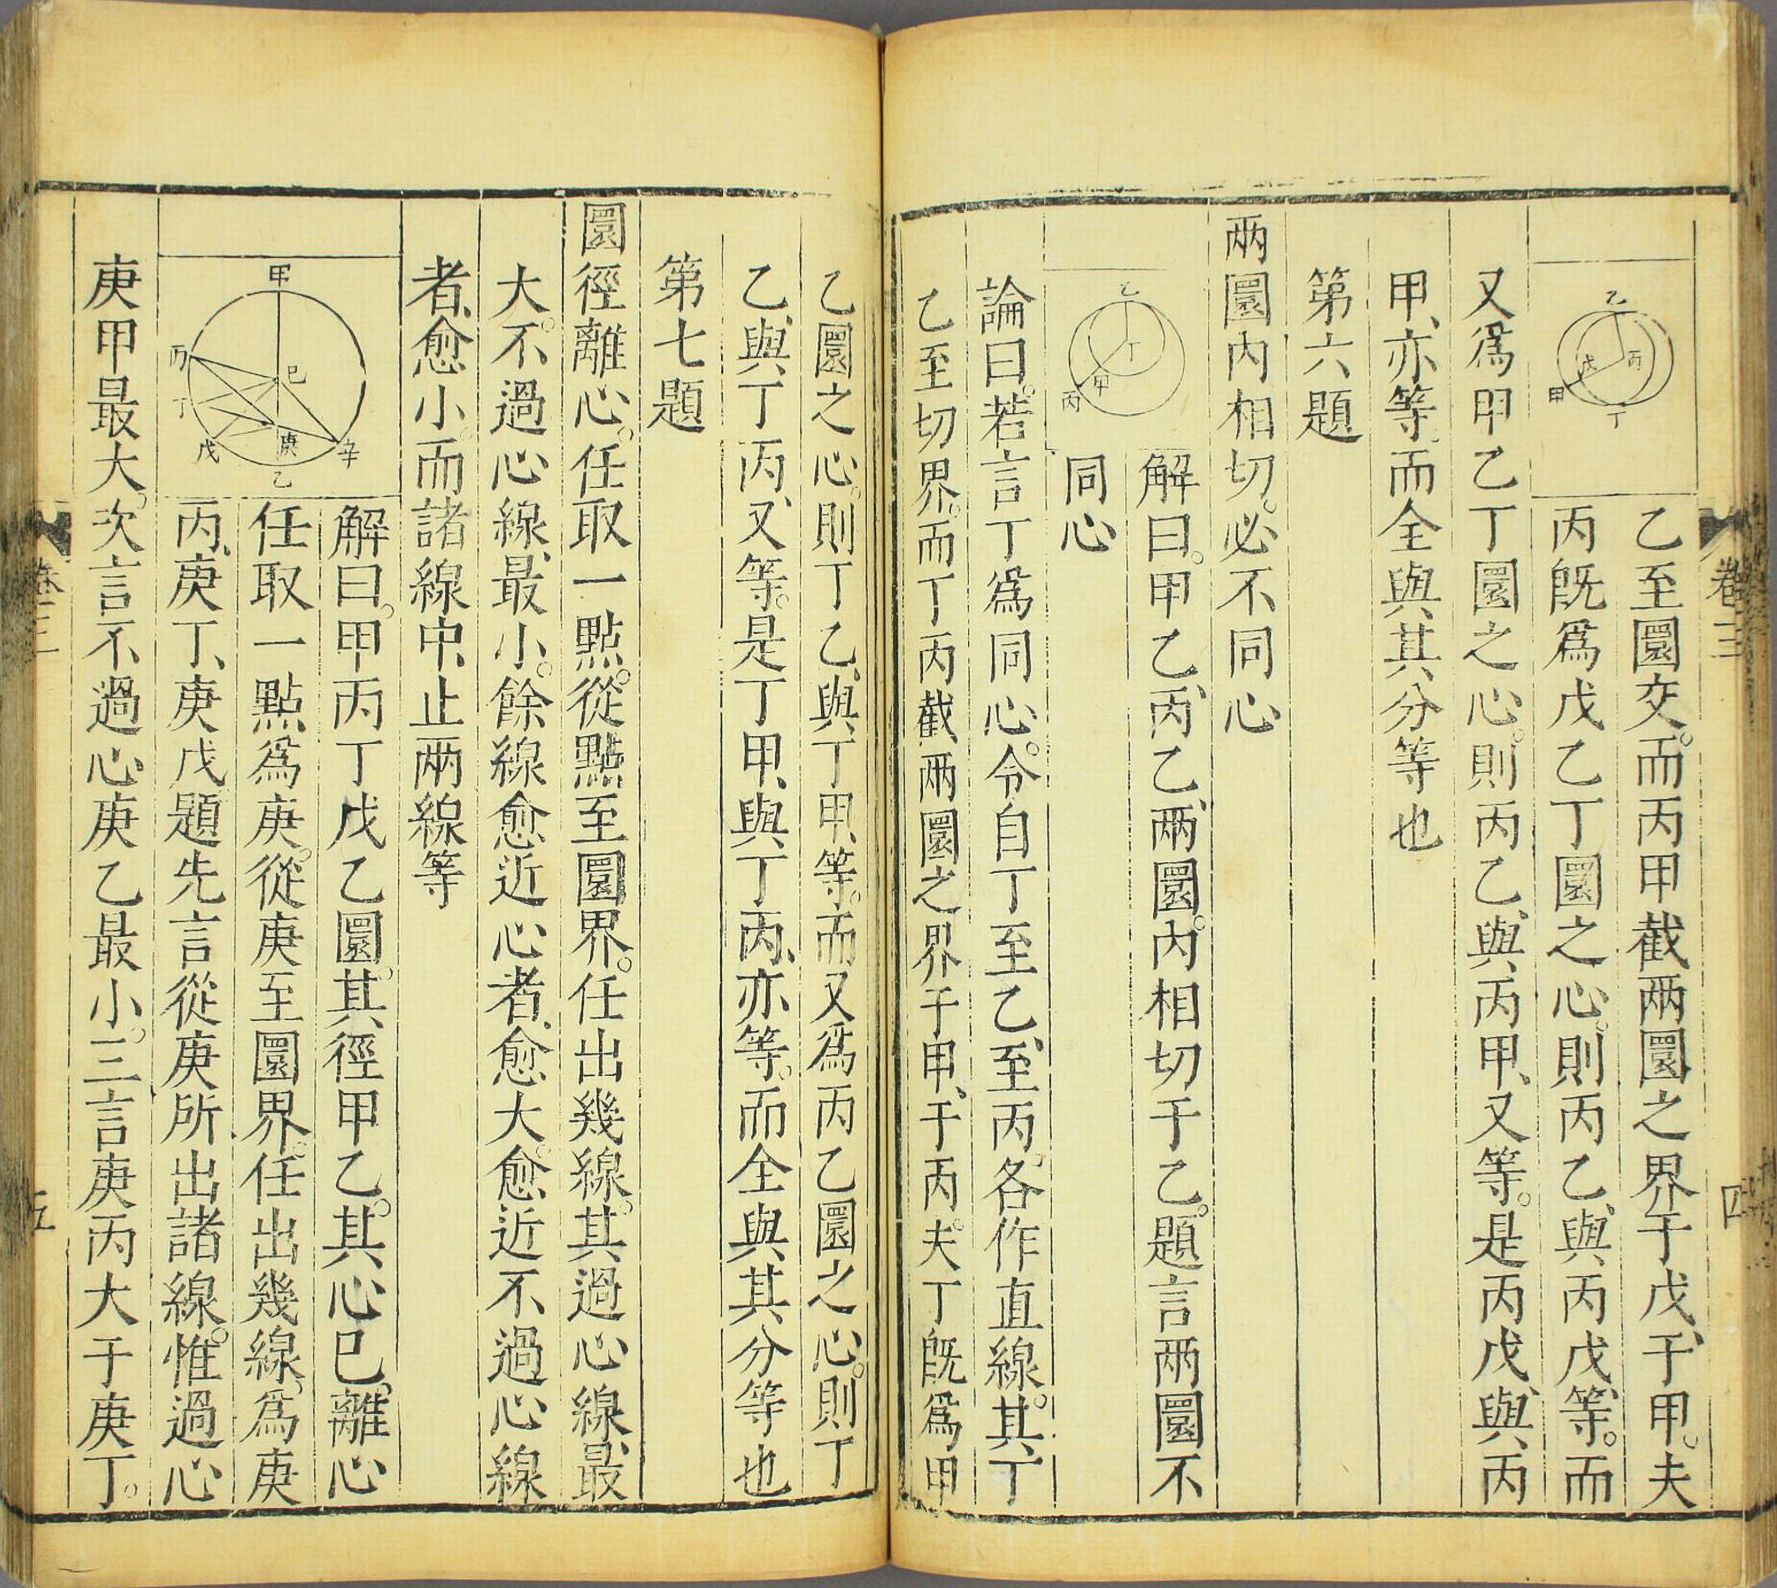 卷三
四
乙
丙
戊
甲
丁
乙至圜交。而丙甲截兩圜之界于戊、于甲。夫
丙旣爲戊乙丁圜之心。則丙乙、與丙戊、等。而
又爲甲乙丁圜之心。則丙乙、與丙甲、又等。是丙戊、與丙
甲、亦等。而全與其分等也
第六題
兩圜內相切。必不同心
乙
丁
甲
丙
解曰。甲乙、丙乙、兩圜。內相切于乙。題言兩圜不
同心
論曰。若言丁爲同心。令自丁至乙、至丙。各作直線。其丁
乙至切界。而丁丙截兩圜之界于甲、于丙。夫丁旣爲甲
乙圜之心。則丁乙、與丁甲、等。而又爲丙乙圜之心。則丁
乙、與丁丙、又等。是丁甲、與丁丙、亦等。而全與其分等也
第七題
圜徑離心。任取一點。從點至圜界。任出幾線。其過心線、最
大。不過心線、最小。餘線愈近心者、愈大。愈近不過心線
者、愈小。而諸線中、止兩線等
甲
丙
己
丁
戊
庚
辛
乙
解曰。甲丙丁戊乙圜。其徑甲乙。其心巳。離心
任取一點爲庚。從庚至圜界。任出幾線。爲庚
丙、庚丁、庚戊題先言從庚所出諸線。惟過心
庚甲最大。次言不過心庚乙最小。三言庚丙大于庚丁。
卷三
五